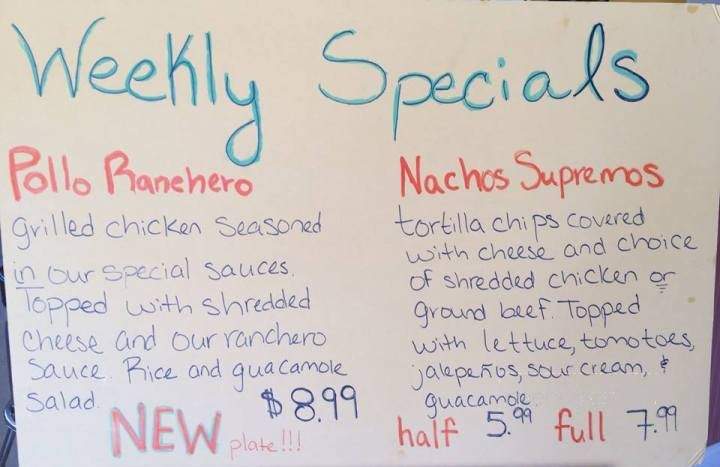 Weekly Specials
Pollo Ranchero
grilled chicken seasoned
in our special sauces.
Topped with shredded
cheese and our ranchero
sauce. Rice and guacamole
salad.
$8.99
NEW plate!!!
Nachos Supremos
tortilla chips covered
with cheese and choice
of shredded chicken or
ground beef. Topped
with lettuce, tomotoes,
jalepeños, sour cream, &
guacamole.
half 5.99 full 7.99